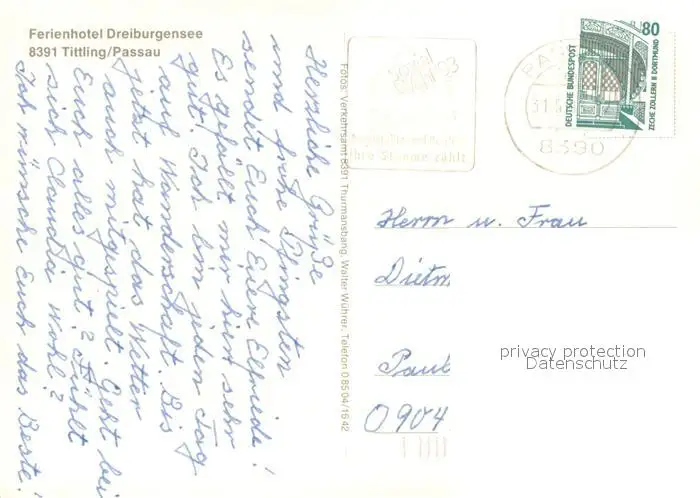 Ferienhotel Dreiburgensee
8391 Tittling/Passau
Herzliche Grüße
und frohe Pfingsten
sendet Euch Euere Elfriede!
Es gefällt mir hier sehr
gut. Ich bin jeden Tag
auf Wanderschaft. Bis
jetzt hat das Wetter
auch mitgespielt. Geht bei
Euch alles gut? Fühlt
sich Claudia wohl?
Ich wünsche Euch das Beste!
Fotos: Verkehrsamt 8391 Thurmansbang, Walter Wührer, Telefon 08504/1642
Ihre Stimme zählt
31.5
8390
80
DEUTSCHE BUNDESPOST
ZECHE ZOLLERN II DORTMUND
Herrn u. Frau
Dietm
Paul
O 904
privacy protection
Datenschutz